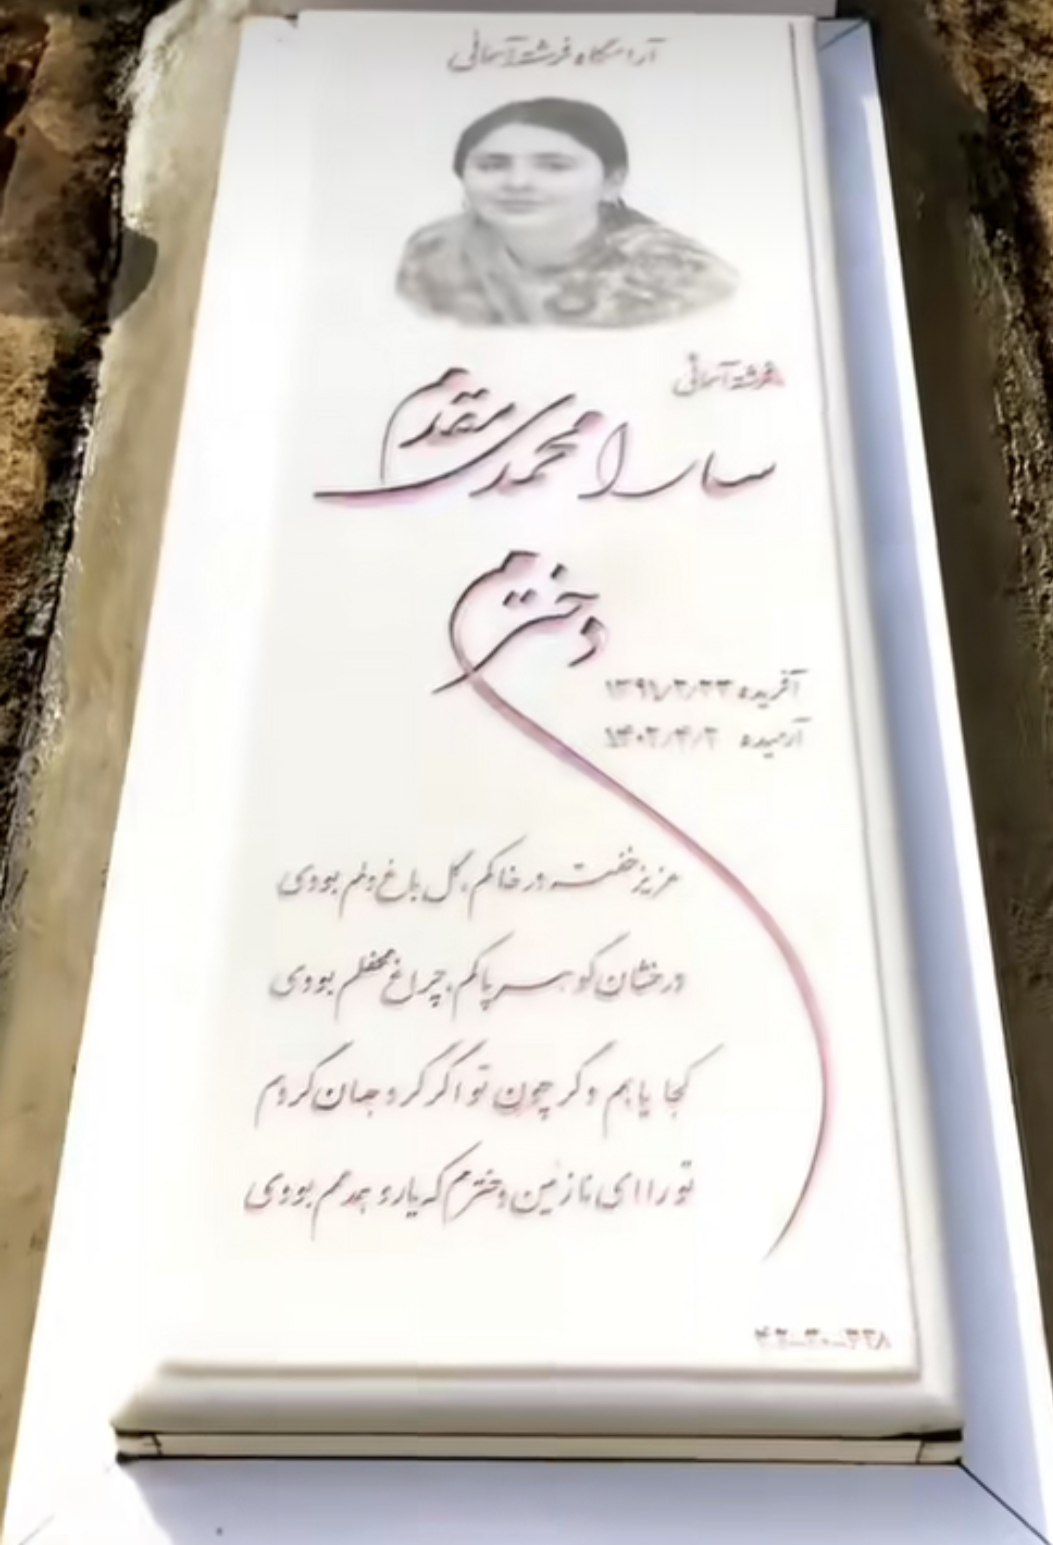 آرامگاه فرشته آسمانی
فرشته آسمانی
سارا محمدی مقدم
دخترم
آفریده ۱۳۹۱/۲/۲۳
آرمیده ۱۴۰۲/۴/۲
عزیز خفته در خاکم، گل باغ دلم بودی
درخشان گوهر پاکم، چراغ محفلم بودی
کجا یابم دگر چون تو اگر گرد جهان گردم
تو را ای نازنین دخترم که یار و همدمم بودی